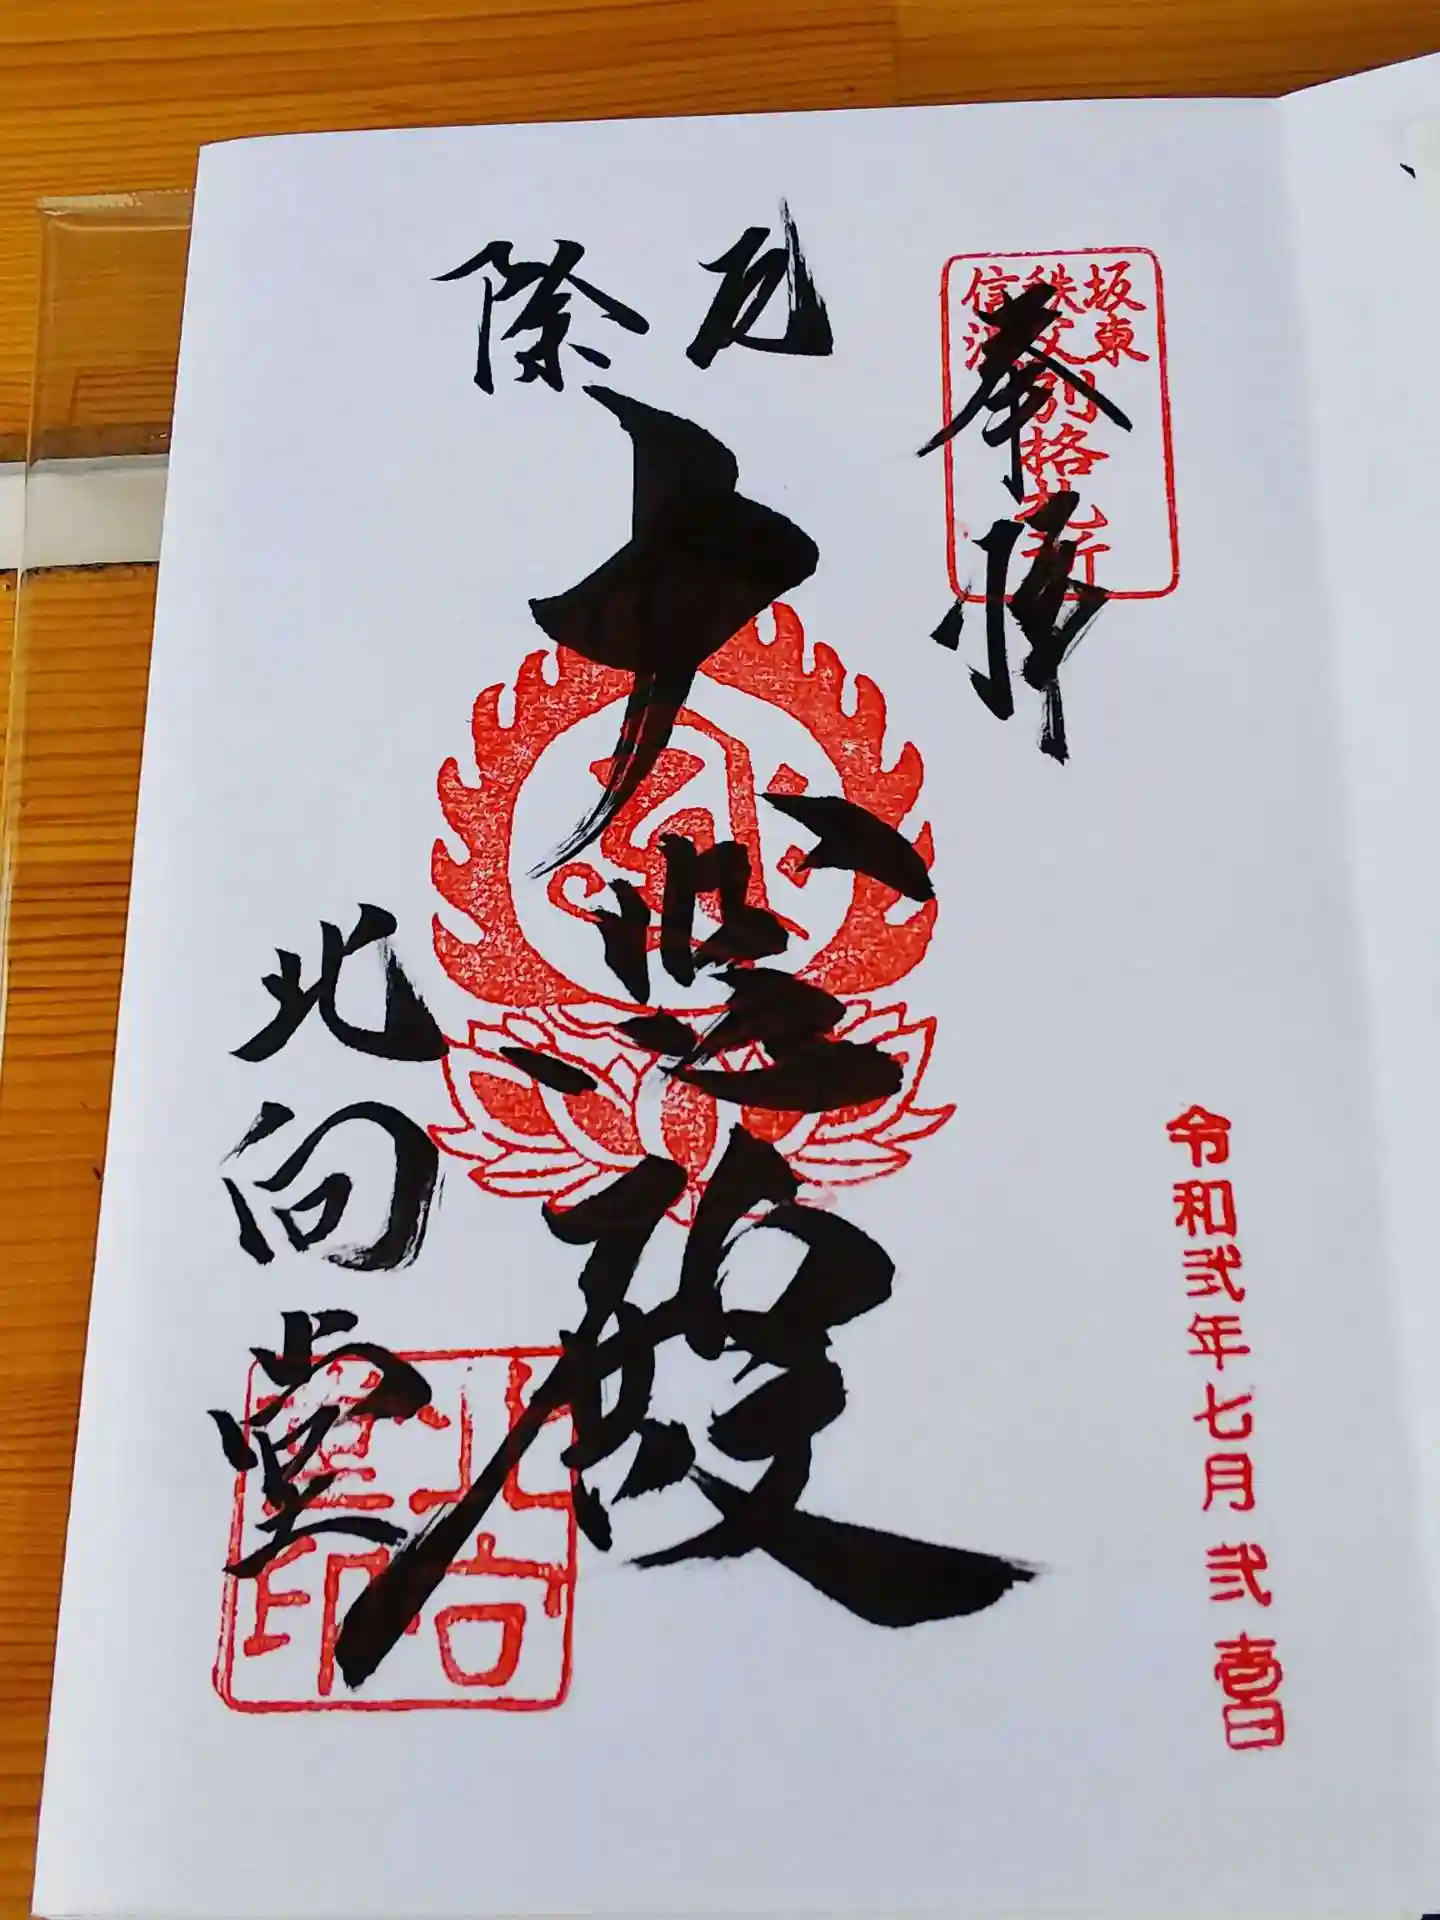 坂東
秩父
信濃
別格札所
奉拝
令和弐年七月弐壹日
厄除
大悲殿
北向堂
北向
堂印